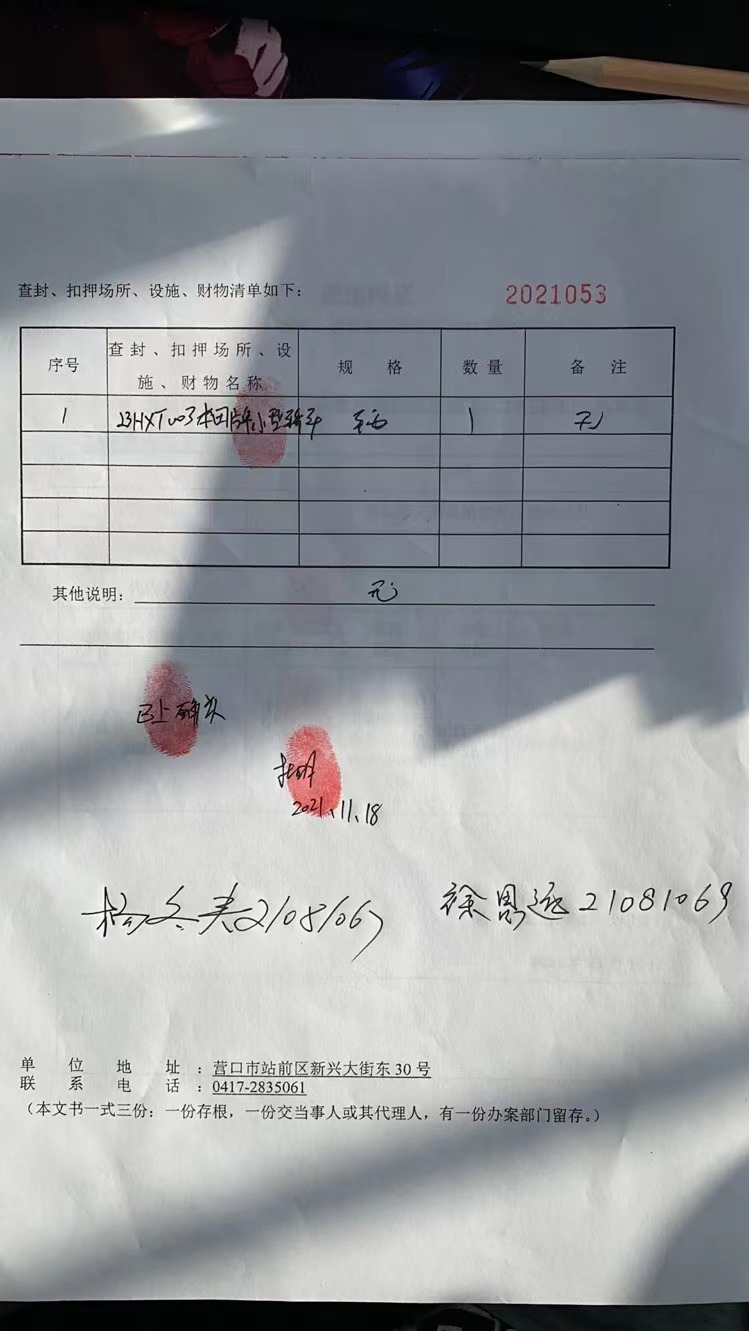 查封、扣押场所、设施、财物清单如下: 2021053
序号 查封、扣押场所、设施、财物名称 规 格 数量 备 注
1 本田牌小型轿车 1 无
其他说明: 无
以上确认
2021.11.18
杨冬 徐恩远21081069
单 位 地 址 : 营口市站前区新兴大街东 30 号
联 系 电 话 : 0417-2835061
(本文书一式三份: 一份存根, 一份交当事人或其代理人, 有一份办案部门留存。)